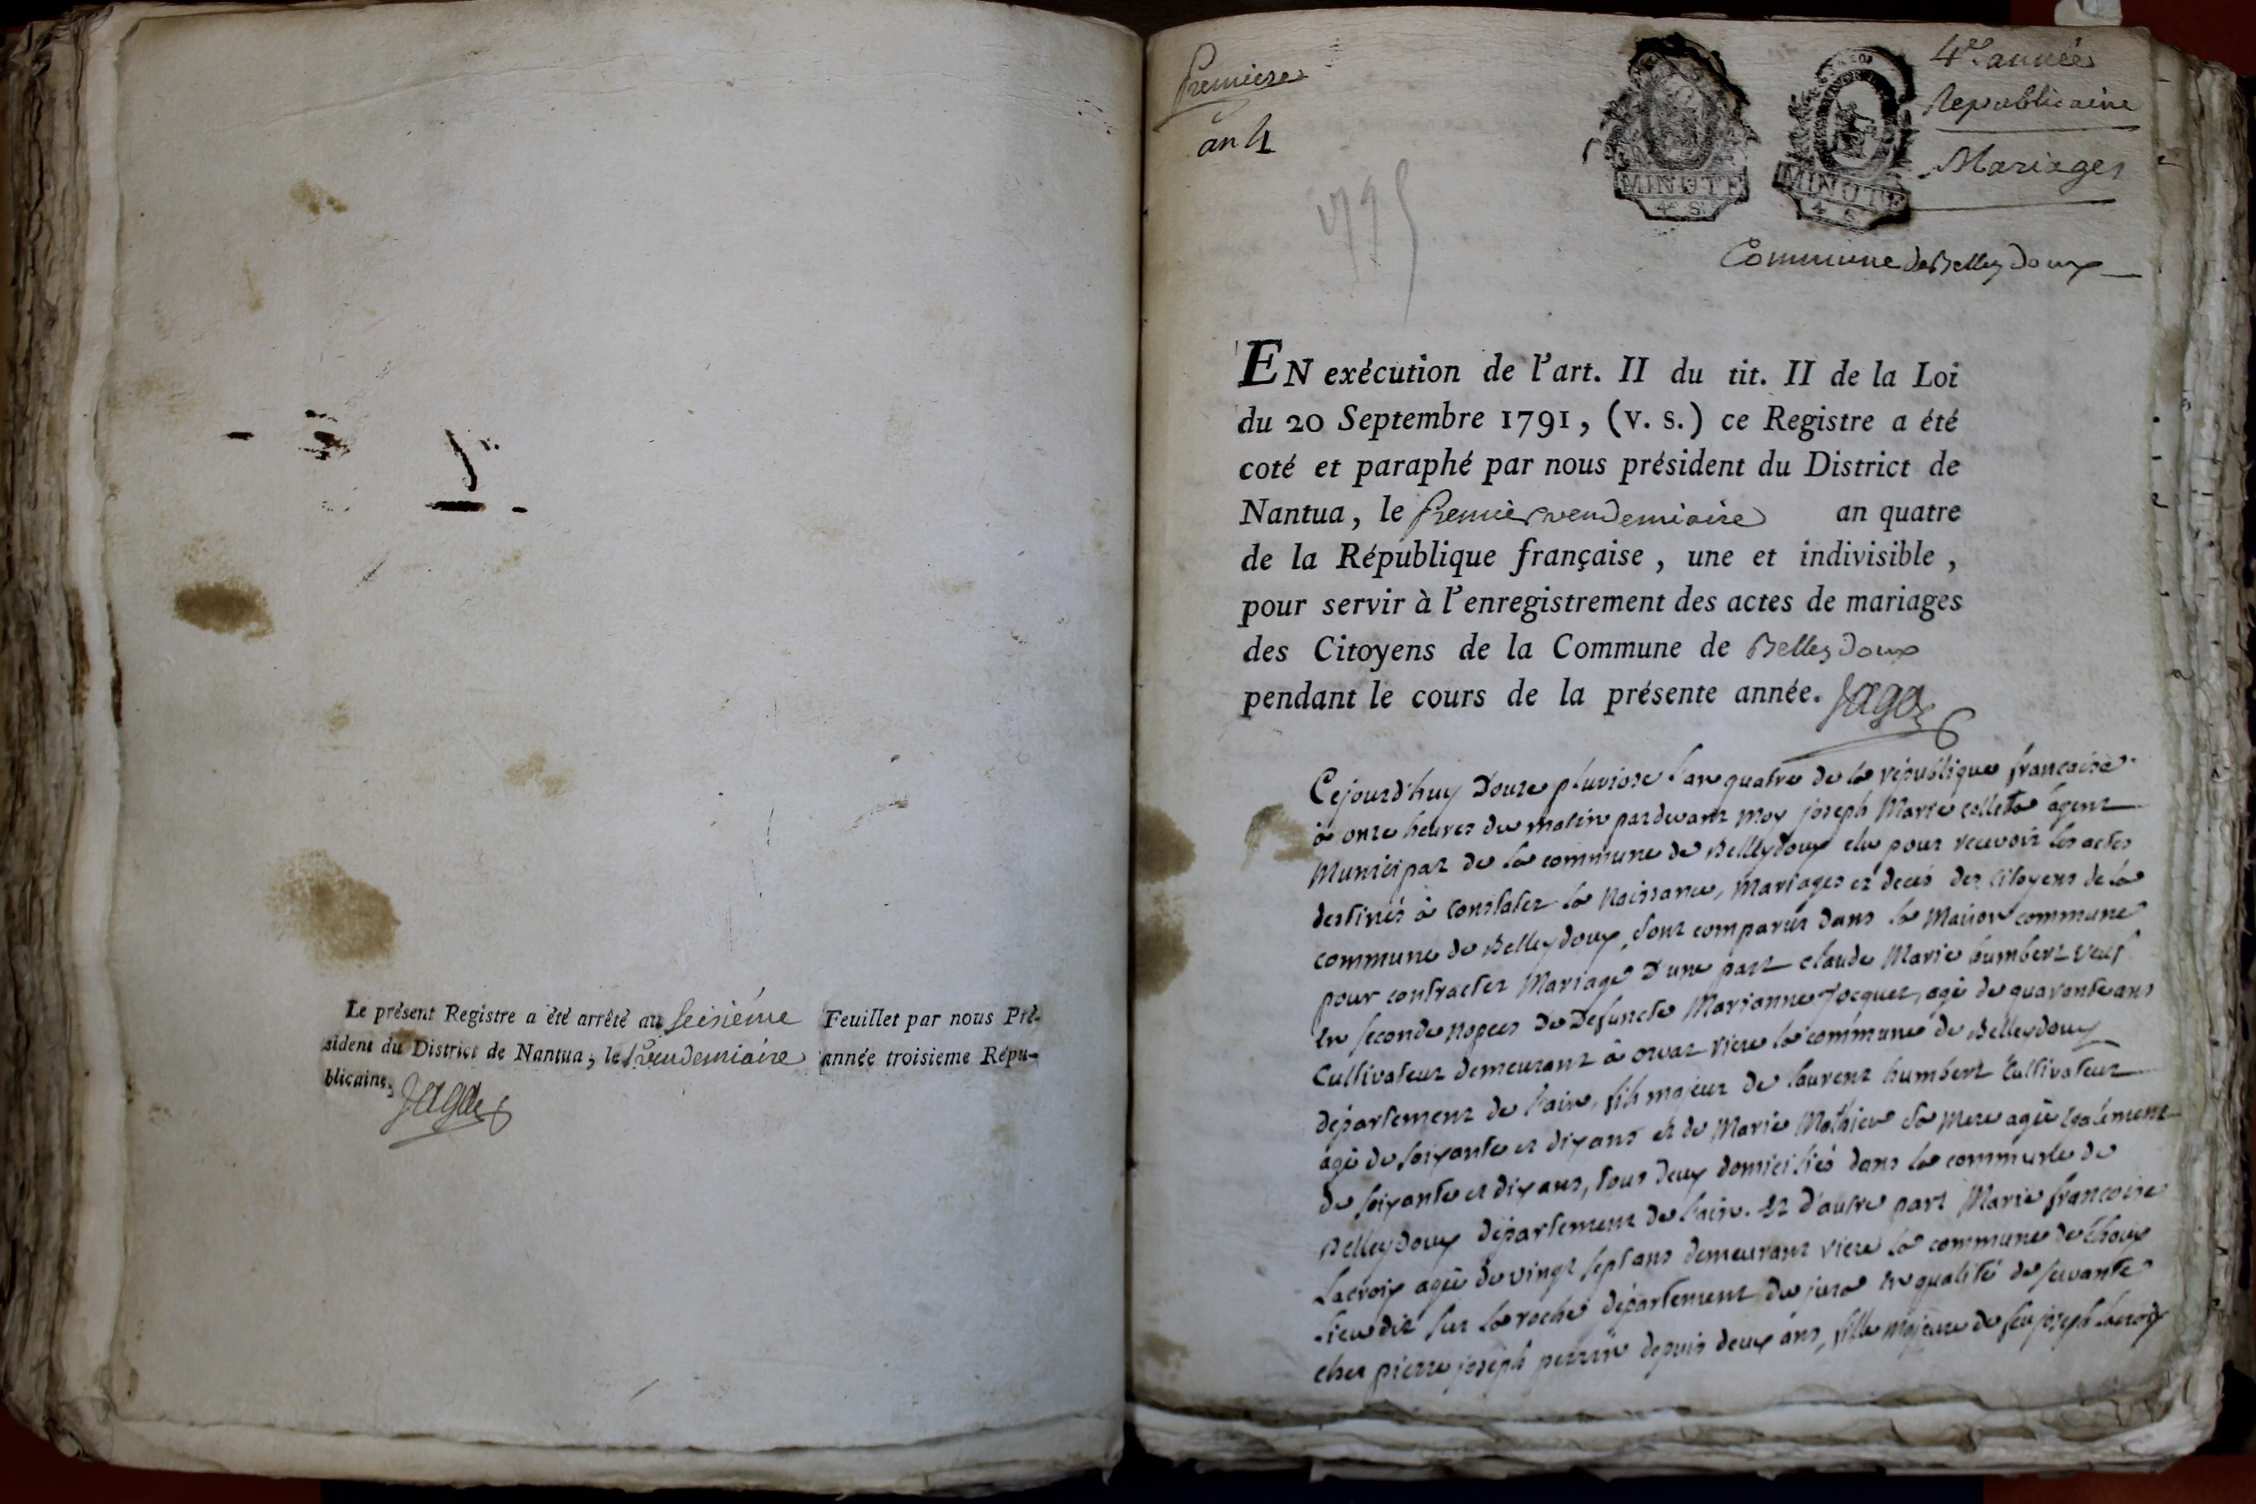 Le présent Registre a été arrêté au seisiéme Feuillet par nous Pré-
sident du District de Nantua, le vendemiaire année troisieme Répu-
blicaine.
Jagot
Premiere
an 4
1795
MINUTE
4 S
MINUTE
4 S
4e année
Republicaine
Mariages
Commune de Belleydoux
EN exécution de l'art. II du tit. II de la Loi
du 20 Septembre 1791, (v. s.) ce Registre a été
coté et paraphé par nous président du District de
Nantua, le premier vendemiaire an quatre
de la République française, une et indivisible,
pour servir à l'enregistrement des actes de mariages
des Citoyens de la Commune de Belleydoux
pendant le cours de la présente année. Jagot
Cejourd'huy douze pluviose l'an quatre de la république françoise
à onze heures du matin pardevant moy joseph Marie colleta agent
Municipal de la commune de Belleydoux elu pour recevoir les actes
destinés à constater la Naissance, Mariages et decès des citoyens de la
commune de Belleydoux, sont comparus dans la Maison commune
pour contracter Mariage d'une part claude Marie humbert veuf
en seconde nopces de Defuncte Marianne Jocquet, agé de quarante ans
Cultivateur demeurant à orvaz riere la commune de Belleydoux
département de l'ain, fils majeur de laurent humbert Cultivateur
agé de soixante et dix ans et de Marie Mathieu sa mere agée également
de soixante et dix ans, tous deux domiciliés dans la commune de
Belleydoux département de l'ain. Et d'autre part Marie francoise
Lacroix agée de vingt sept ans demeurant riere la commune de Choux
lieu dit sur la roche département du jura en qualité de servante
chez pierre joseph perrin depuis deux ans, fille majeure de feu joseph lacroix